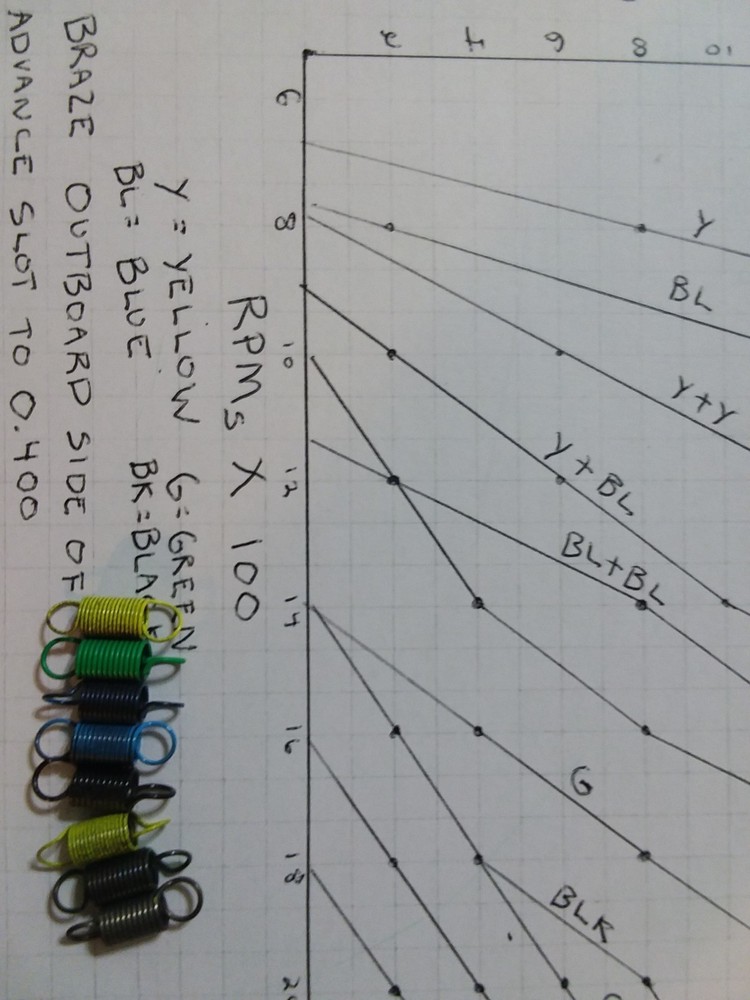 10
8
6
4
2
Y
BL
Y+Y
Y+BL
BL+BL
G
BLK
6 8 10 12 14 16 18
RPMs X 100
Y = YELLOW G=GREEN
BL= BLUE BK=BLACK
BRAZE OUTBOARD SIDE OF
ADVANCE SLOT TO 0.400